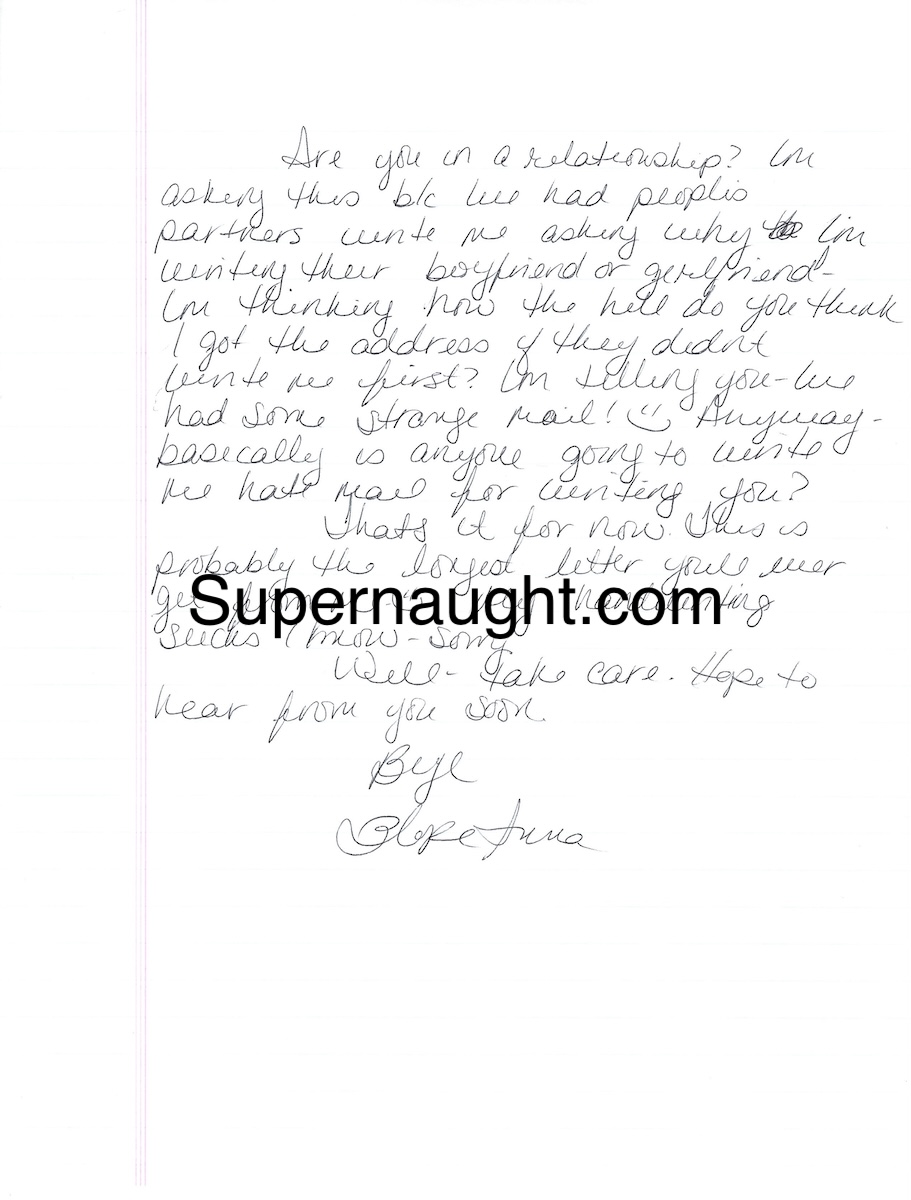 Are you in a relationship? Im
asking this b/c Ive had peoples
partners write me asking why Im
writing their boyfriend or girlfriend-
Im thinking how the hell do you think
I got the address if they didnt
write me first? Im telling you-Ive
had some strange mail! Anyway-
basically is anyone going to write
me hate mail for writing you?
Thats it for now. This is
probably the longest letter youll ever
get from me- My handwriting
Supernaught.com
sucks I know-sorry
Well- Take care. Hope to
hear from you soon.
Bye